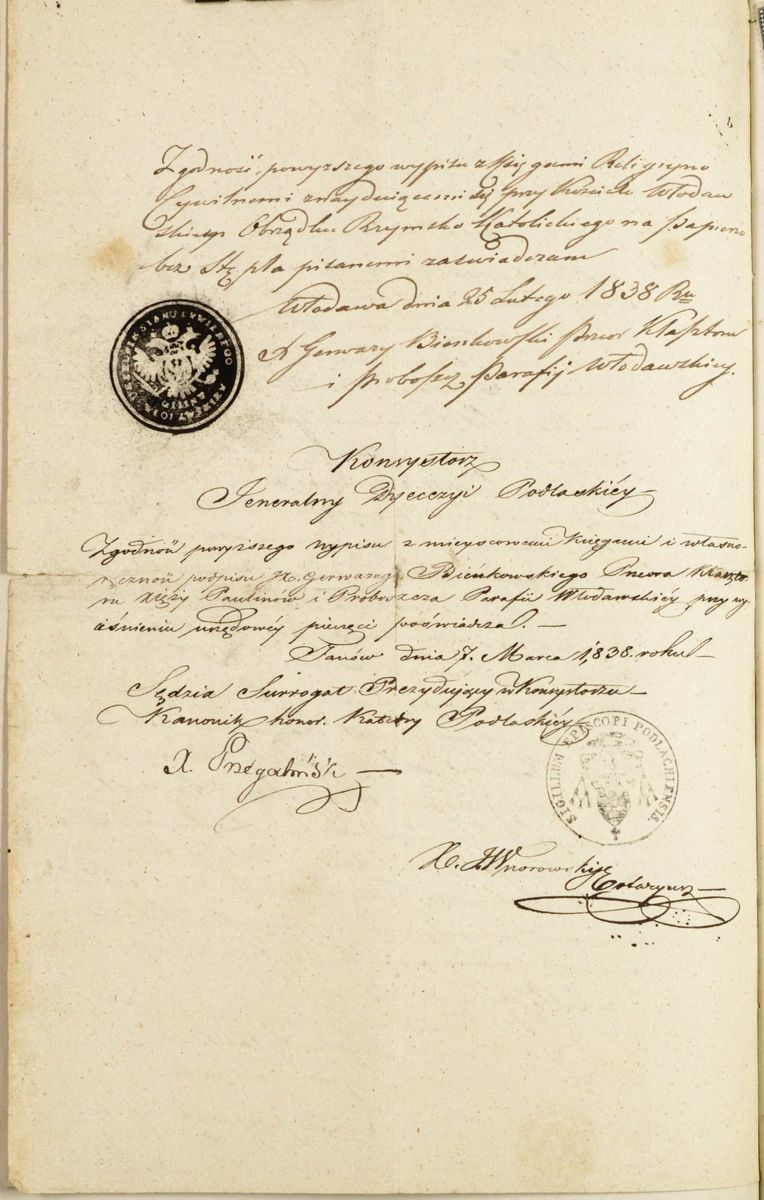 Zgodność powyższego wypisu z Księgami Religiyno
Cywilnemi znayduiącemi się przy Kościele Włodaw
skiego Obrządku Rzymsko Katolickiego na papierze
bez Stępla pisanemi zaświadczam
Włodawa dnia 25 Lutego 1838 Ru
X Gerwazy Bienkowski Przeor Klasztoru
i Proboszcz Parafij Włodawskiey.
Konsystorz
Jeneralny Dyecezyi Podlaskiéy
Zgodność powyższego wypisu z mieyscowemi Księgami i własno-
ręczność podpisu JX. Gerwazego Bieńkowskiego Przeora Klaszto
ru XXięży Paulinów i Proboszcza Parafii Włodawskiéy przy wy
ciśnieniu urzędowéy pieczęci poświadcza.
Janów dnia 7. Marca 1838. roku
Sędzia Surrogat Prezyduiący w Konsystorzu
Kanonik honor. Katedry Podlaskiéy
X. Przegaliński
SIGILLUM EPISCOPI PODLACHIENSIS.
X. Wnorowski
Notaryusz